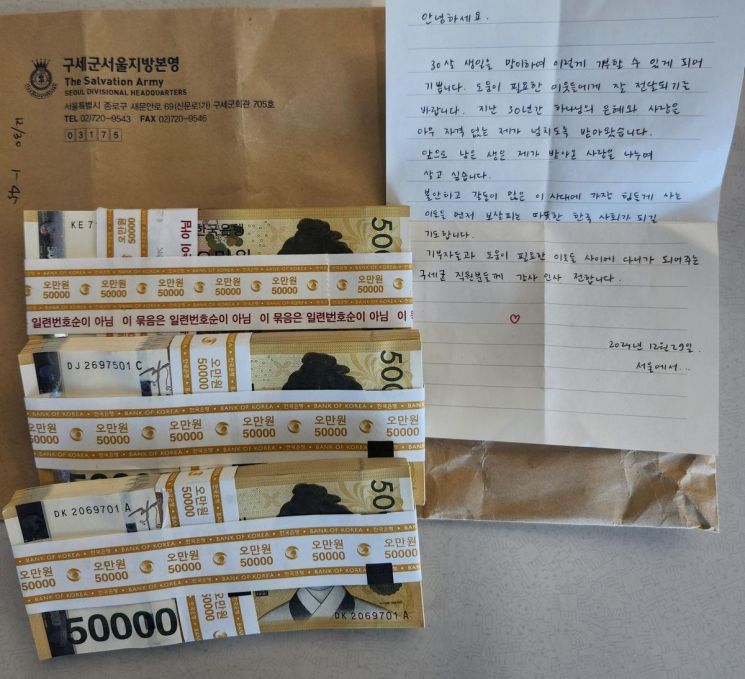 구세군서울지방본영
The Salvation Army
SEOUL DIVISIONAL HEADQUARTERS
서울특별시 종로구 새문안로 69(신문로1가) 구세군회관 705호
TEL 02)720-9543 FAX 02)720-9546
03175
12/30
안녕하세요.
30살 생일을 맞이하여 이렇게 기부할 수 있게 되어
기쁩니다. 도움이 필요한 이웃들에게 잘 전달되기를
바랍니다. 지난 30년간 하나님의 은혜와 사랑을
아무 자격 없는 제가 넘치도록 받아왔습니다.
앞으로 남은 생은 제가 받아온 사랑을 나누며
살고 싶습니다.
불안하고 갈등이 많은 이 시대에 가장 힘들게 사는
이들을 먼저 보살피는 따뜻한 한국 사회가 되길
기도합니다.
기부자들과 도움이 필요한 이웃들 사이에 다리가 되어주는
구세군 직원분들께 감사 인사 전합니다.
2024년 12월 29일.
서울에서...
KE 7
오만원
50000
한국은행
500
BANK OF KOREA 한국은행 BANK OF KOREA 한국은행 BANK OF KOREA
오만원 오만원 오만원 오만원 오만원
50000 50000 50000 50000 50000
일련번호순이 아님 이 묶음은 일련번호순이 아님 이 묶음은 일련번호순이 아님 이 묶
DJ 2697501 C
오만원
50000
500
BANK OF KOREA 한국은행 BANK OF KOREA 한국은행 BANK OF KOREA
오만원 오만원 오만원 오만원 오만원 오만원
50000 50000 50000 50000 50000 50000
DK 2069701 A
오만원
50000
500
BANK OF KOREA 한국은행 BANK OF KOREA 한국은행 BANK OF KOREA
오만원 오만원 오만원 오만원 오만원 오만원
50000 50000 50000 50000 50000 50000
50000
DK 2069701 A